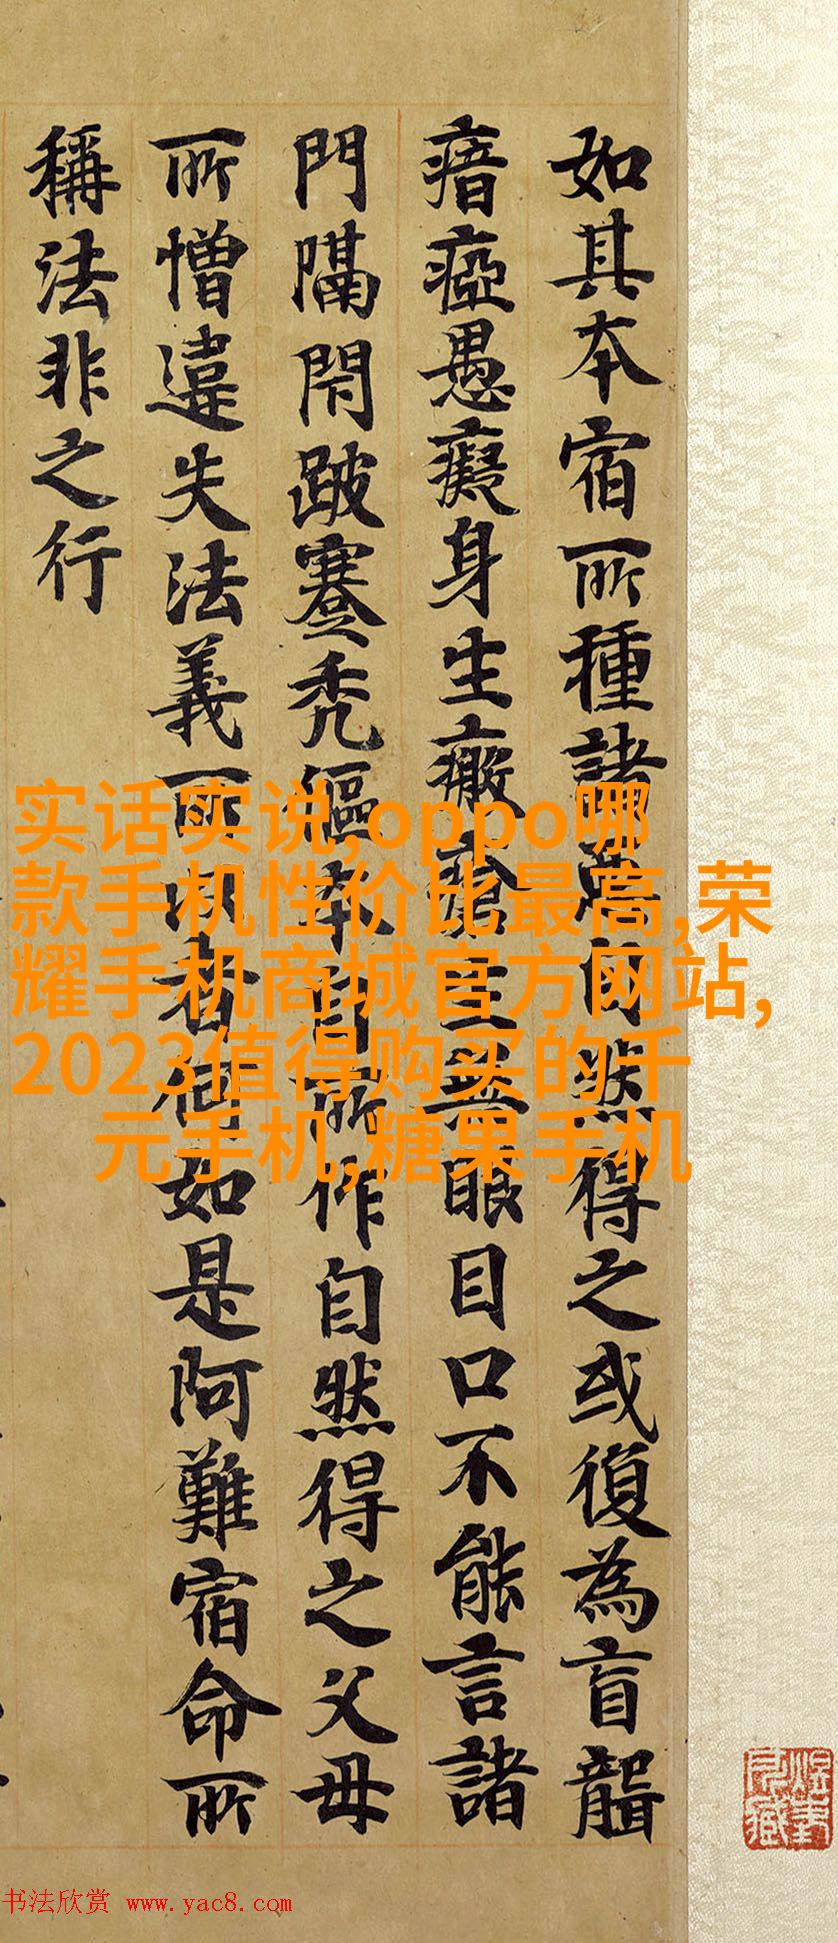 如其本宿所種諸自然得之或復為盲聾
瘖瘂愚癡身生瘢瘡生無眼目口不能言諸
門隔閇跛蹇秃傴本自所作自然得之父母
所憎違失法義所以者何如是阿難宿命所
稱法非之行
实话实说,oppo哪
款手机性价比最高,荣
耀手机商城官方网站,
2023值得购买的千
元手机,糖果手机
书法欣赏 www.yac8.com